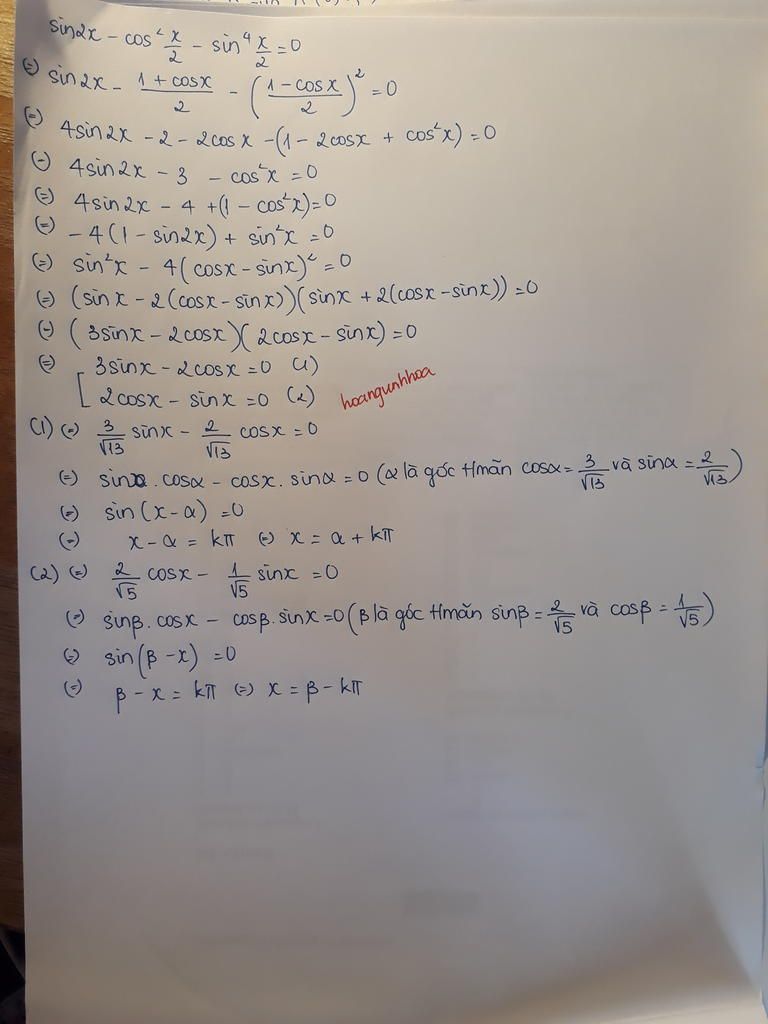 sin2x − cos²x/2 − sin⁴x/2 = 0
(=) sin2x − (1 + cosx)/2 − ((1 − cosx)/2)² = 0
(=) 4sin2x − 2 − 2cosx − (1 − 2cosx + cos²x) = 0
(=) 4sin2x − 3 − cos²x = 0
(=) 4sin2x − 4 + (1 − cos²x) = 0
(=) −4(1 − sin2x) + sin²x = 0
(=) sin²x − 4(cosx − sinx)² = 0
(=) (sinx − 2(cosx − sinx))(sinx + 2(cosx − sinx)) = 0
(=) (3sinx − 2cosx)(2cosx − sinx) = 0
(=) [ 3sinx − 2cosx = 0 (1)
2cosx − sinx = 0 (2)
hoangunhhoa
(1) (=) 3/√13 sinx − 2/√13 cosx = 0
(=) sinx . cosα − cosx . sinα = 0 (α là góc t/mãn cosα = 3/√13 và sinα = 2/√13)
(=) sin(x − α) = 0
(=) x − α = kπ (=) x = α + kπ
(2) (=) 2/√5 cosx − 1/√5 sinx = 0
(=) sinβ . cosx − cosβ . sinx = 0 (β là góc t/mãn sinβ = 2/√5 và cosβ = 1/√5)
(=) sin(β − x) = 0
(=) β − x = kπ (=) x = β − kπ